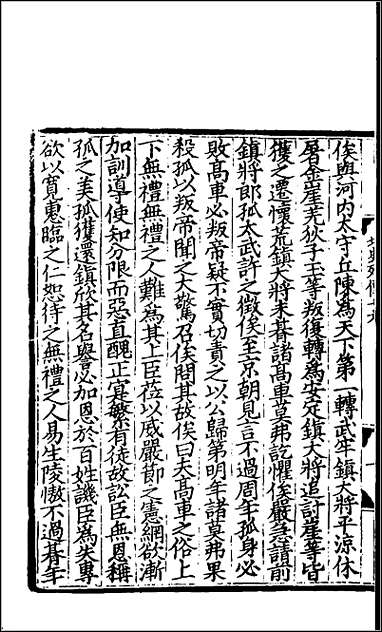 俟與河內太守丘陳為天下第一轉武牢鎮大將平涼休
屠金崖羌狄子玉等叛復轉為安定鎮大將追討崖等皆
獲之遷懷荒鎮大將未朞諸高車莫弗訖懼俟嚴急請前
鎮將郎孤太武許之徵俟至京朝見言不過周年孤身必
敗高車必叛帝疑不實切責之以公歸第明年諸莫弗果
殺孤以叛帝聞之大驚召俟問其故俟曰夫高車之俗上
下無禮無禮之人難為其上臣莅以威嚴節之憲網欲漸
加訓導使知分限而惡直醜正寔繁有徒故訟臣無恩稱
孤之美孤獲還鎮欣其名譽必加恩於百姓譏臣為失專
欲以寬惠臨之仁恕待之無禮之人易生陵慠不過朞年